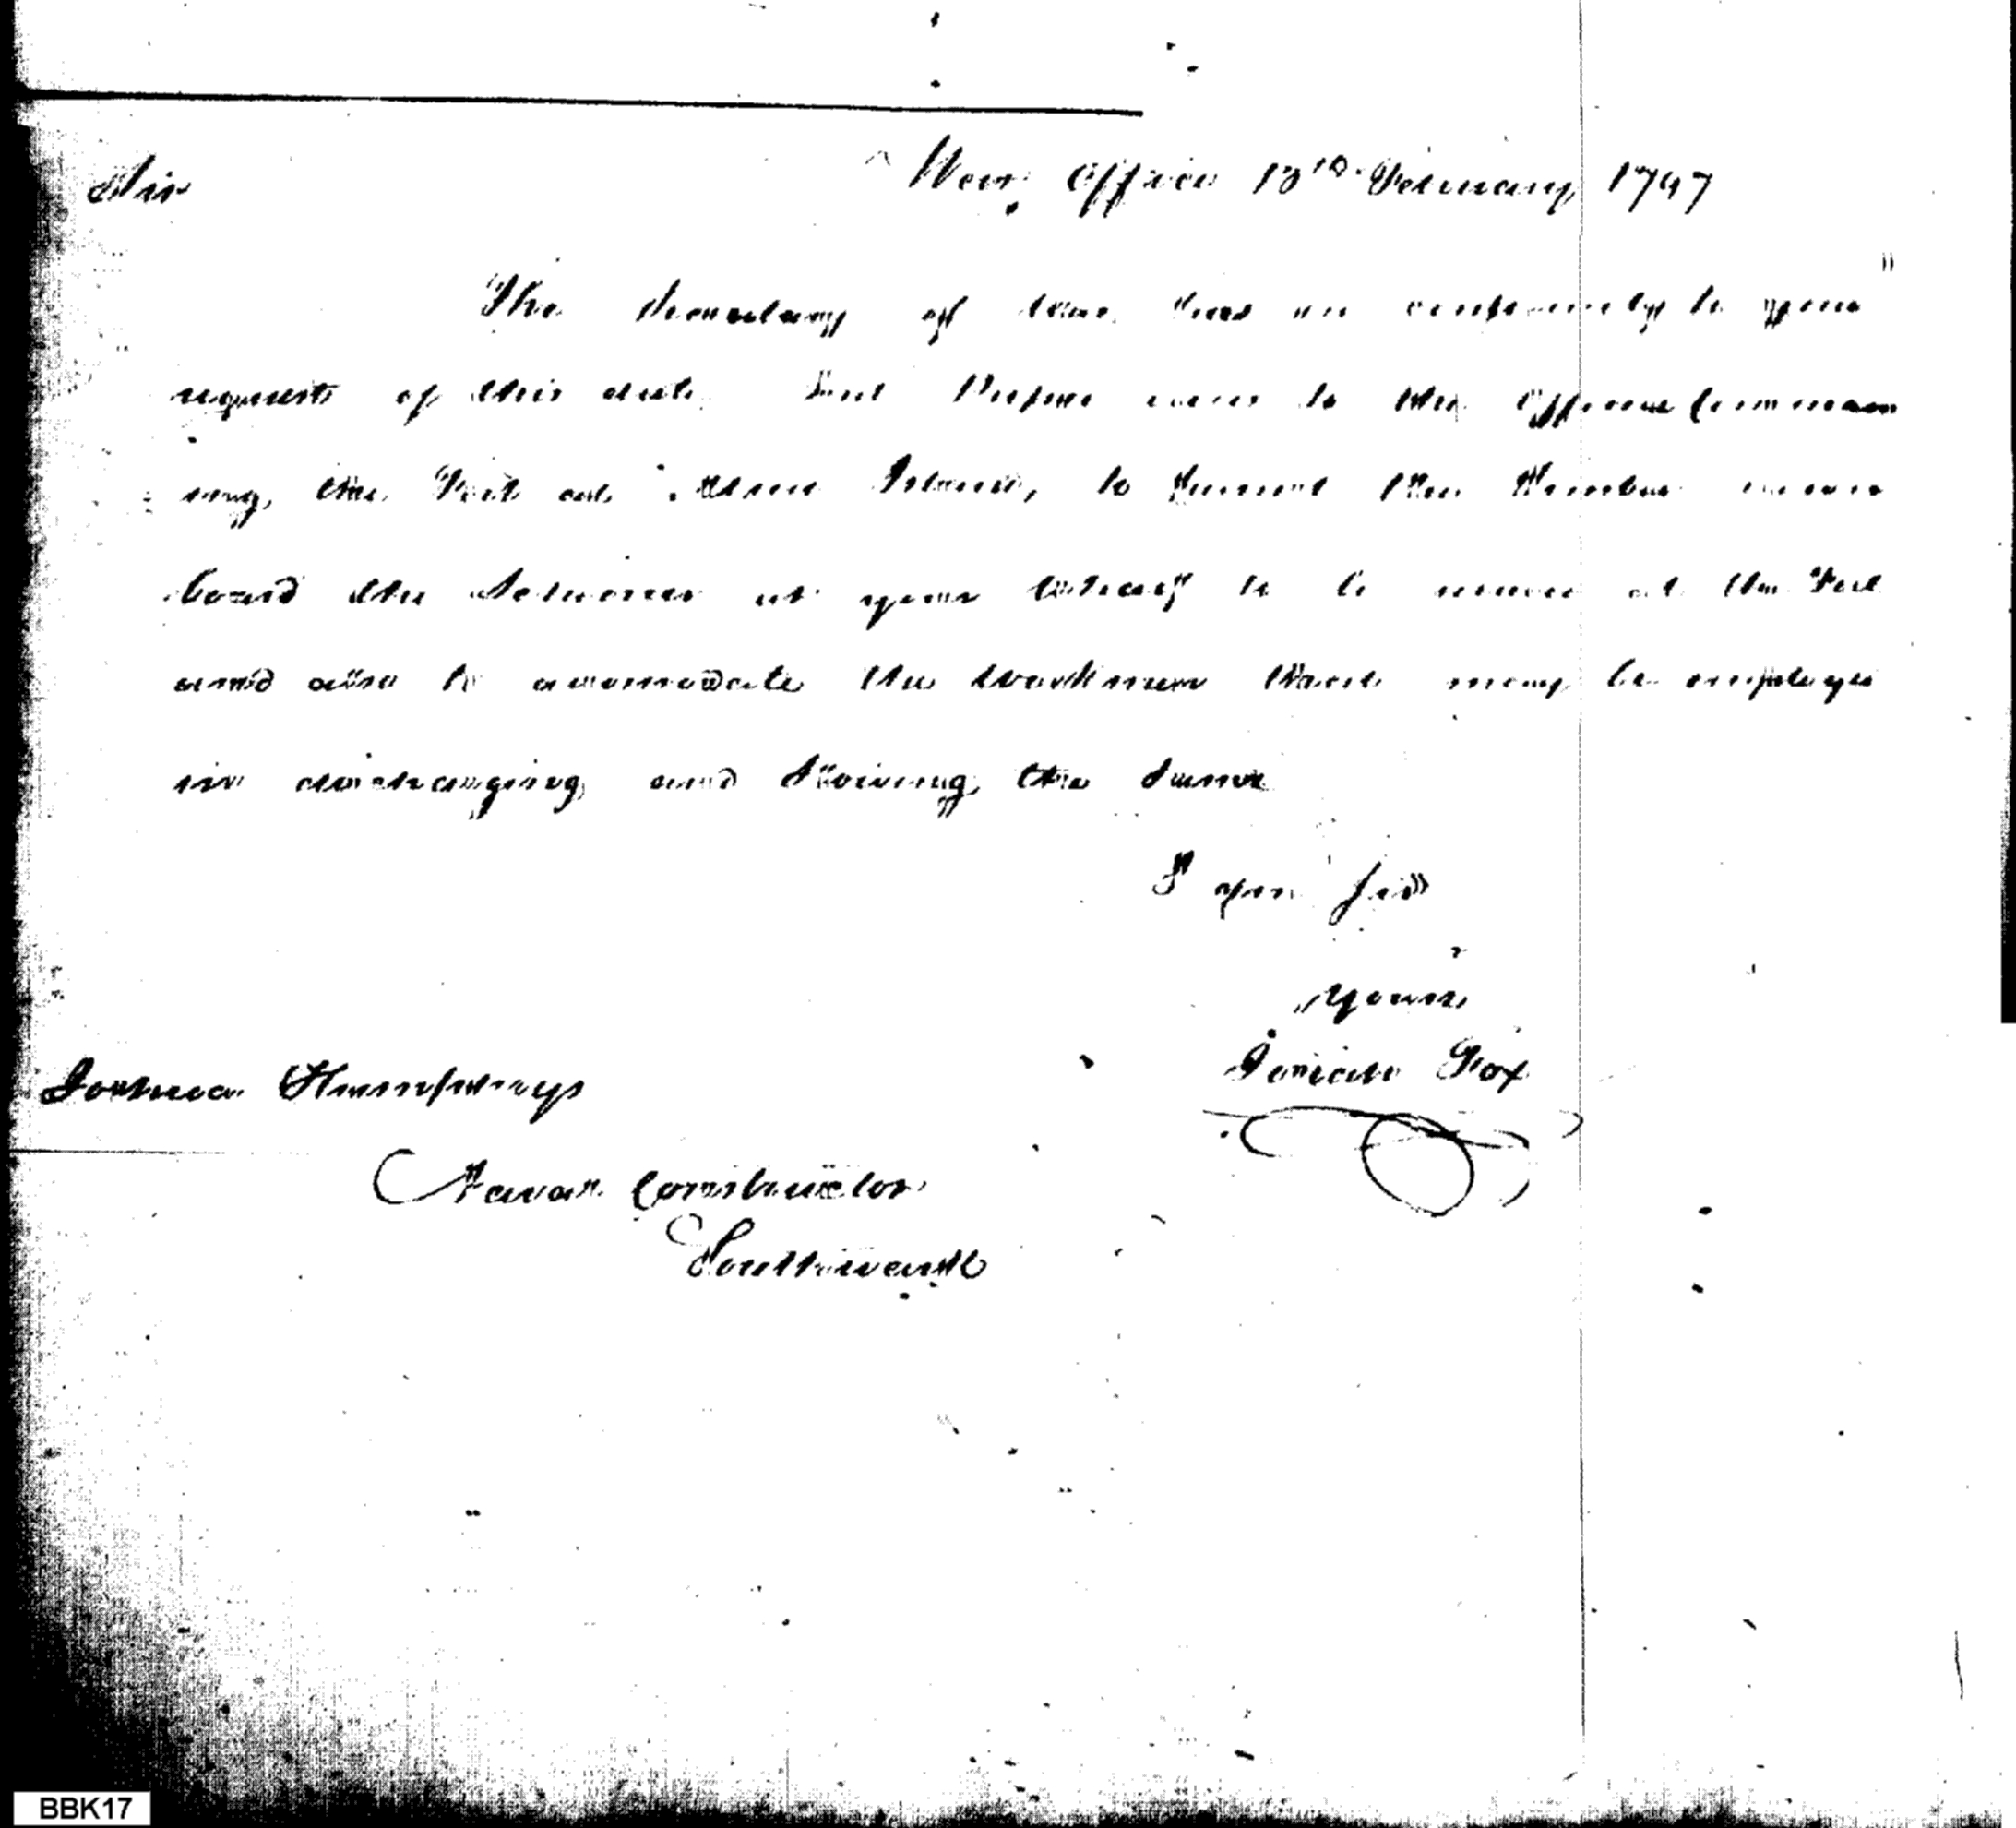 Sir
War Office 13th February 1797
The Secretary of War has in conformity to your
request of this date sent to the Officer Comman
ing the Fort at Island, to permit the Timber
board the Schooner at your Wharf to be at the Fort
and also to accomodate the Workmen that may be employed
in discharging and Stowing the Same
I am Sir
Yours
Josiah Fox
Joshua Humphreys
Naval Constructor
Southwark
BBK17